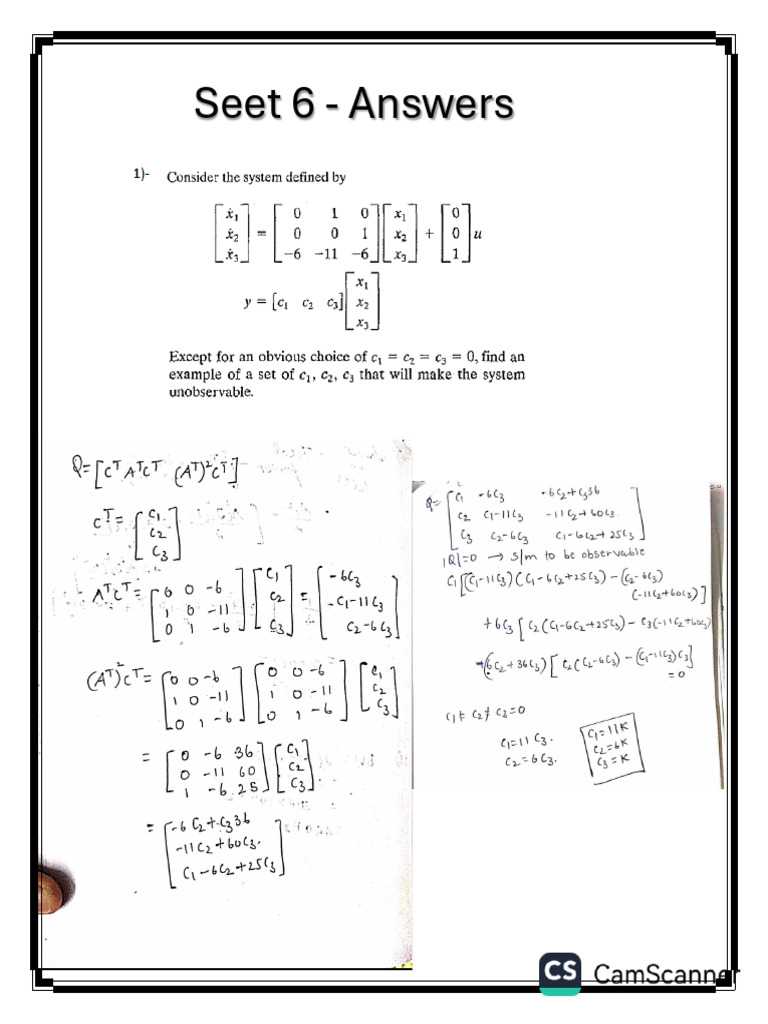 Seet 6 - Answers
1)- Consider the system defined by
[ẋ₁ ẋ₂ ẋ₃] = [0 1 0; 0 0 1; −6 −11 −6] [x₁ x₂ x₃] + [0 0 1] u
y = [c₁ c₂ c₃] [x₁ x₂ x₃]
Except for an obvious choice of c₁ = c₂ = c₃ = 0, find an
example of a set of c₁, c₂, c₃ that will make the system
unobservable.
Q = [Cᵀ AᵀCᵀ (Aᵀ)²Cᵀ]
Cᵀ = [C₁ C₂ C₃]
AᵀCᵀ = [0 0 -6; 1 0 -11; 0 1 -6] [C₁ C₂ C₃] = [-6C₃; C₁-11C₃; C₂-6C₃]
(Aᵀ)²Cᵀ = [0 0 -6; 1 0 -11; 0 1 -6] [0 0 -6; 1 0 -11; 0 1 -6] [C₁ C₂ C₃]
= [0 -6 36; 0 -11 60; 1 -6 25] [C₁ C₂ C₃]
= [-6C₂+C₃36; -11C₂+60C₃; C₁-6C₂+25C₃]
Q = [C₁ -6C₃ -6C₂+C₃36; C₂ C₁-11C₃ -11C₂+60C₃; C₃ C₂-6C₃ C₁-6C₂+25C₃]
|Q|=0 → S/m to be observable
C₁[(C₁-11C₃)(C₁-6C₂+25C₃)-(C₂-6C₃)
(-11C₂+60C₃)]
+6C₃[C₂(C₁-6C₂+25C₃)-C₃(-11C₂+60C₃)
+(6C₂+36C₃)[C₂(C₂-6C₃)-(C₁-11C₃)C₃]
=0
C₁≠ C₂≠ C₃=0
C₁=11C₃.
C₂=6C₃.
C₁=11K
C₂=6K
C₃=K
CS CamScanner